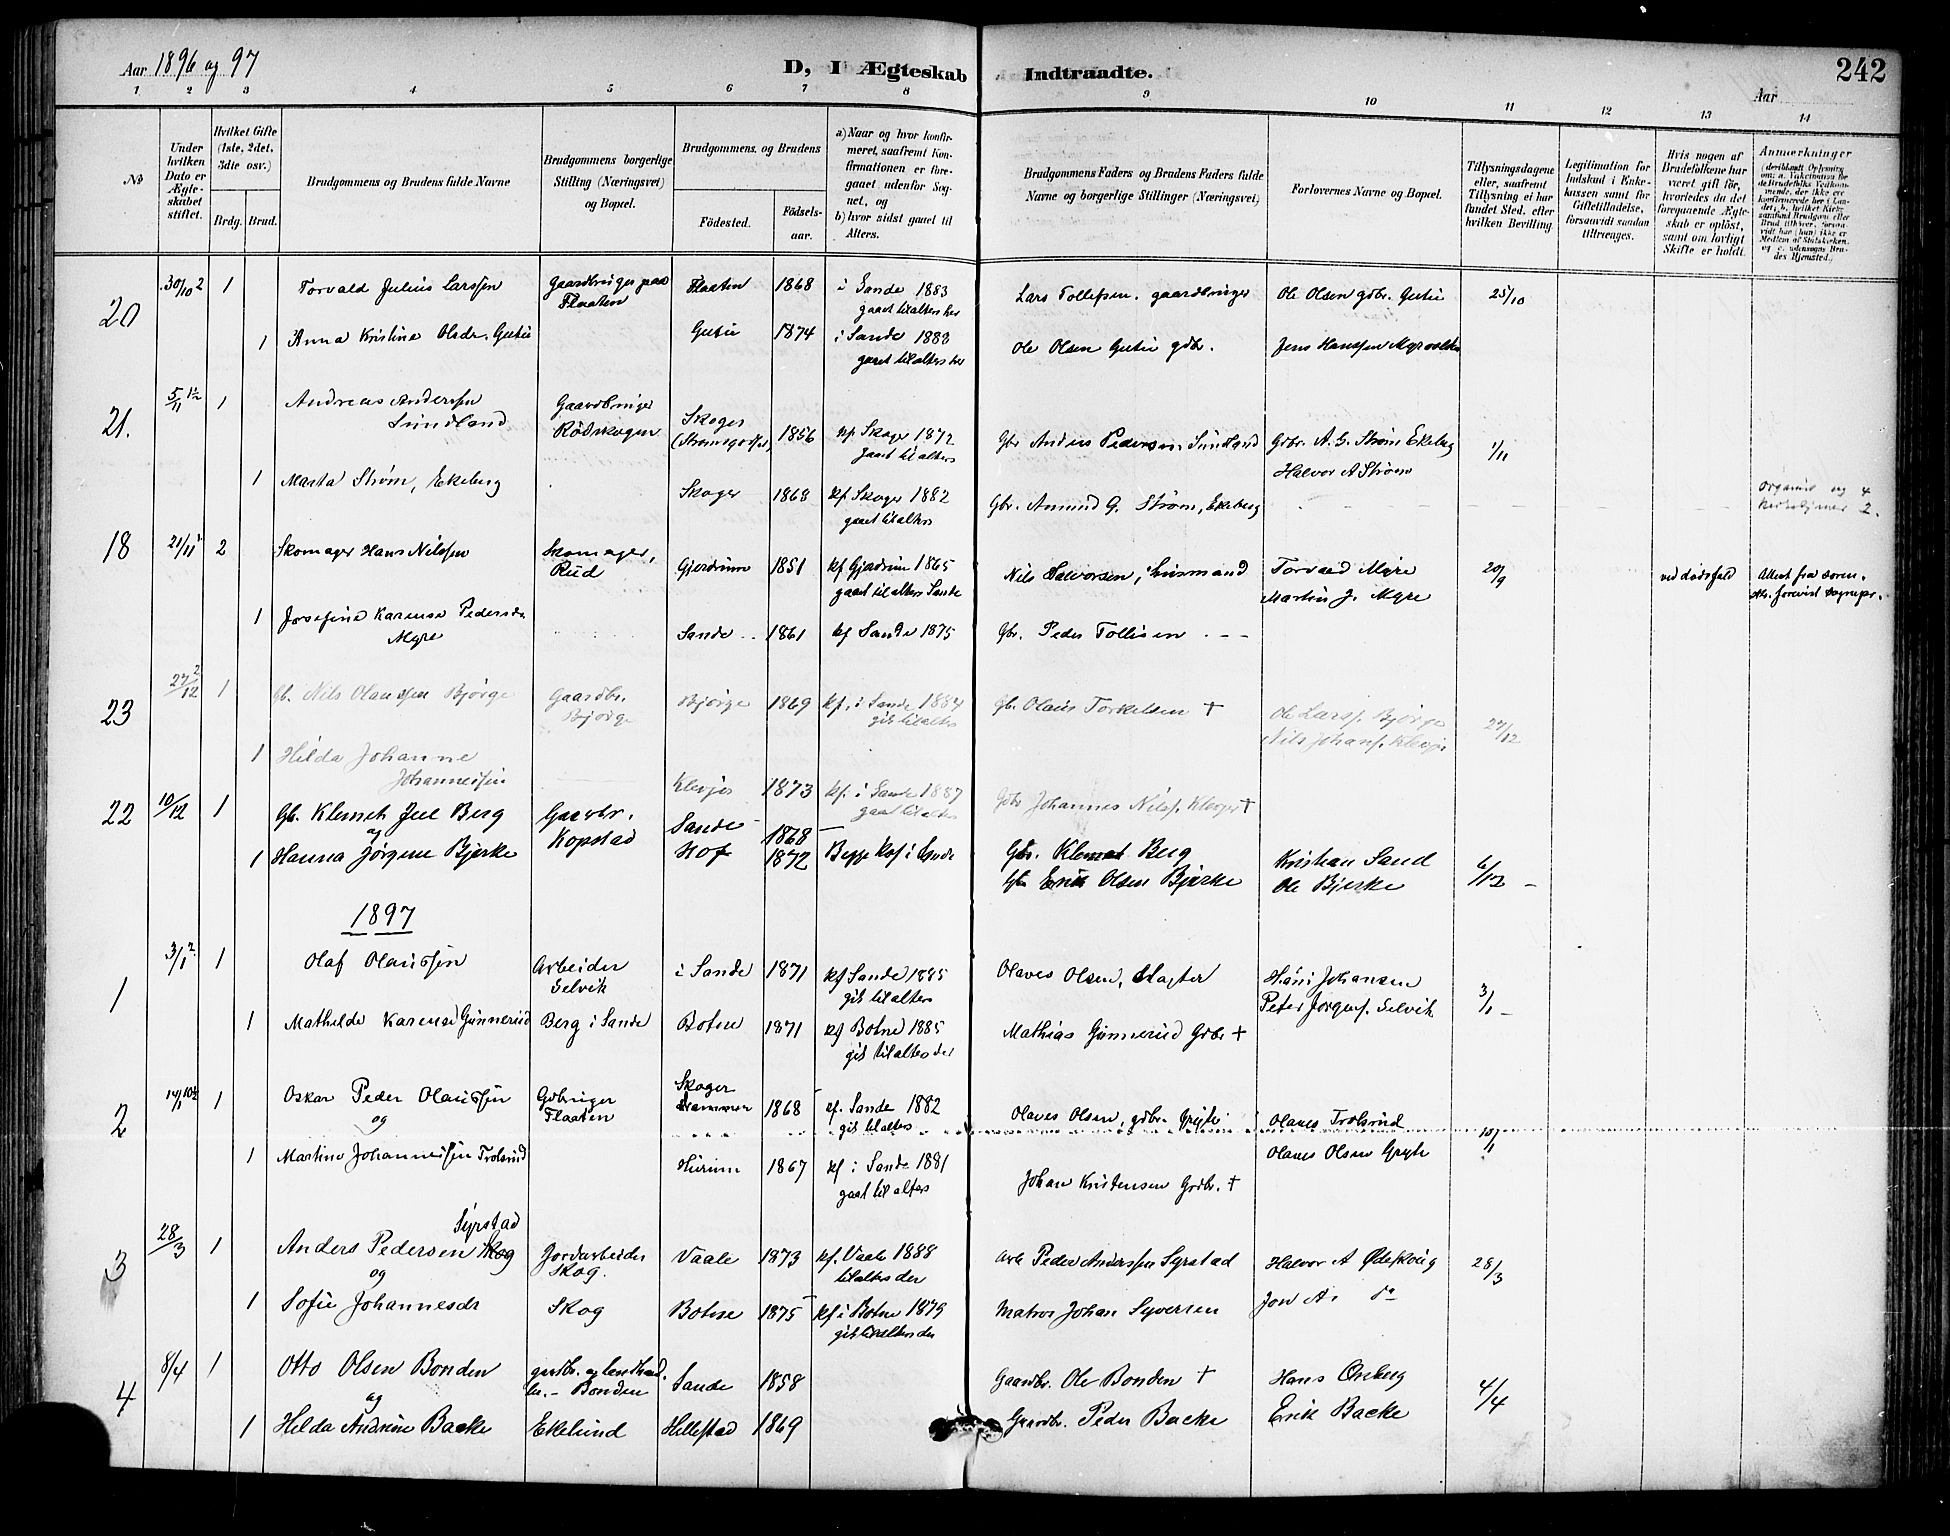 Aar 1896 og 97
D, I Ægteskab Indtraadte.
242
Aar
1 2 3 4 5 6 7 8 9 10 11 12 13 14
No
Under hvilken Dato er Ægteskabet stiftet.
Hvilket Gifte (1ste, 2det, 3die osv.)
Brdg. Brud.
Brudgommens og Brudens fulde Navne
Brudgommens borgerlige Stilling (Næringsvei) og Bopæl.
Brudgommens og Brudens
Fødested. Fødselsaar.
a) Naar og hvor konfirmeret, saafremt Konfirmationen er foregaaet udenfor Sognet, og
b) hvor sidst gaaet til Alters.
Brudgommens Faders og Brudens Faders fulde Navne og borgerlige Stillinger (Næringsvei)
Forlovernes Navne og Bopæl.
Tillysningsdagene eller, saafremt Tillysning ei har fundet Sted, efter hvilken Bevilling.
Legitimation for Indskud i Enkekassen samt for Giftetilladelse, forsaavidt saadan tiltrænges.
Hvis nogen af Brudefolkene har været gift før, hvorledes da det foregaaende Ægteskab er opløst, samt om lovligt Skifte er holdt.
Anmerkninger
20 30/10 2 1 Torvald Julius Larssen Gaardbruger paa Flaaten Flaaten 1868 i Sande 1883 gaaet til alters her Lars Tollefsen, gaardbruger Ole Olsen gdbr. Gutu 25/10
1 Anna Kristine Olsdr. Gutu Gutu 1874 i Sande 1888 gaaet til alters her Ole Olsen Gutu gdbr. Jens Hanssen
21. 5/11 1 Andreas Anderssen Sundland Gaardbruger Rødskogen Skoger (Strømsgodset) 1856 kf. Skoger 1872 gaaet til alters Gbr Anders Pedersen Sundland Gdbr. A. G. Strøm Ekeberg Halvor A Strøm 1/11
1 Marta Strøm, Ekeberg Skoger 1868 kf Skoger 1882 gaaet til alters Gbr. Amund G. Strøm, Ekeberg
18 21/11 2 Skomager Hans Nilssen Skomager, Rud Gjerdrum 1851 kf Gjerdrum 1865 gaaet til alters Sande Nils Halvorsen, Husmand Torvald Myre Martin J. Myre 20/9 ved dødsfald Attest fra
1 Josefine Karense Pedersdr Myre Sande 1861 kf Sande 1875 Gbr. Peder Tollefsen
23 27/12 2 1 Gb. Nils Olaussen Bjørge Gaardbr. Bjørge Bjørge 1869 kf. i Sande 1884 git til alters Gb. Olaus Torkelsen † Ole Larss. Bjørge Nils Johans. Klevjer 27/12
1 Hilda Johanne Johannessen Klevjer 1873 kf. i Sande 1887 gaaet til alters Gdbr Johannes Nilss. Klevjer †
22 10/12 1 Gb. Klemet Juel Berg Gaardbr. Kopstad Sande 1868 Gbr. Klemet Berg Kristian Sand 6/12
og
1 Hanna Jørgine Bjerke Hof 1872 Begge kof i Sande Gbr Erik Olsen Bjerke Ole Bjerke
1897
1 3/1 2 1 Olaf Olaussen Arbeider Selvik i Sande 1871 kf Sande 1885 git til alters Olaves Olsen, Slagter Hans Johansen Peter Jørgens. Selvik 3/1
1 Mathilde Karense Gunnerud Berg i Sande Botne 1871 kf Botne 1885 git til alters der Mathias Gunnerud Gdbr †
2 14/1 10½ 1 Oskar Peder Olaussen Gdbruger Flaaten Skoger Drammen 1868 kf. Sande 1882 git til alters Olaves Olsen, gdbr. Olaves Trolsrud 10/1
og
1 Martine Johannessen Trolsrud Hurum 1867 kf i Sande 1881 gaaet til alters Johan Kristensen Gdbr. † Olaves Olsen
3 28/3 1 Anders Pedersen Skog Syrstad Jordarbeider Skog. Vaale 1873 kf. Vaale 1888 til alters der Arb Peder Anderssen Syrstad Halvor A Ødeskoug 28/3
og
1 Sofie Johannesdr Skog Botne 1875 kf i Botne 1879 git til alters der Matros Johan Syversen Jon A. do
4 8/4 1 Otto Olsen Bonden gardbr. og landhand. Bonden Sande 1858 Gaardbr. Ole Bonden † Hans 4/4
og
1 Hilda Andrine Backe Ekelund Hillestad 1869 Gaardbr. Peder Backe Erik Backe